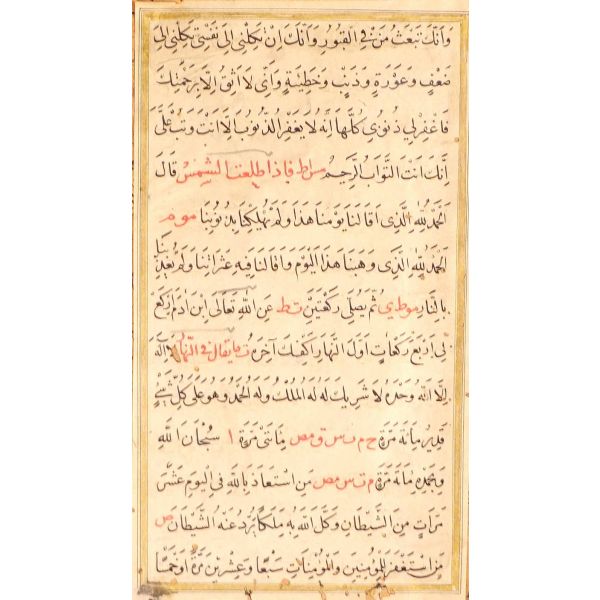 وَاَنَّكَ تَبْعَثُ مَنْ فِي الْقُبُورِ وَاَنَّكَ اِنْ تَكِلْنِي اِلَى نَفْسِي تَكِلْنِي اِلَى
ضَعْفٍ وَعَوْرَةٍ وَذَنْبٍ وَخَطِيئَةٍ وَاَنِّي لَا اَثِقُ اِلَّا بِرَحْمَتِكَ
فَاغْفِرْ لِي ذُنُوبِي كُلَّهَا اِنَّهُ لَا يَغْفِرُ الذُّنُوبَ اِلَّا اَنْتَ وَتُبْ عَلَيَّ
اِنَّكَ اَنْتَ التَّوَّابُ الرَّحِيمُ مس ا ط فَاِذَا طَلَعَتِ الشَّمْسُ قَالَ
اَلْحَمْدُ لِلّٰهِ الَّذِي اَقَالَنَا يَوْمَنَا هَذَا وَلَمْ يُهْلِكْنَا بِذُنُوبِنَا مو م
اَلْحَمْدُ لِلّٰهِ الَّذِي وَهَبَنَا هَذَا الْيَوْمَ وَاَقَالَنَا فِيهِ عَثَرَاتِنَا وَلَمْ يُعَذِّبْنَا
بِالنَّارِ مو ط ي ثُمَّ يُصَلِّي رَكْعَتَيْنِ ت ط عَنِ اللّٰهِ تَعَالَى اِبْنَ اٰدَمَ اِرْكَعْ
لِي اَرْبَعَ رَكَعَاتٍ اَوَّلَ النَّهَارِ اَكْفِكَ اٰخِرَهُ ت مَا يُقَالُ فِي النَّهَارِ لَا اِلٰهَ
اِلَّا اللّٰهُ وَحْدَهُ لَا شَرِيكَ لَهُ لَهُ الْمُلْكُ وَلَهُ الْحَمْدُ وَهُوَ عَلَى كُلِّ شَيْءٍ
قَدِيرٌ مِائَةَ مَرَّةٍ خ م ت س ق مص مِائَتَيْ مَرَّةٍ ا سُبْحَانَ اللّٰهِ
وَبِحَمْدِهِ مِائَةَ مَرَّةٍ م ت س مص مَنِ اسْتَعَاذَ بِاللّٰهِ فِي الْيَوْمِ عَشْرَ
مَرَّاتٍ مِنَ الشَّيْطَانِ وَكَّلَ اللّٰهُ بِهِ مَلَكًا يَرُدُّ عَنْهُ الشَّيْطَانَ ص
مَنِ اسْتَغْفَرَ لِلْمُؤْمِنِينَ وَالْمُؤْمِنَاتِ سَبْعًا وَعِشْرِينَ مَرَّةً اَوْ خَمْسًا